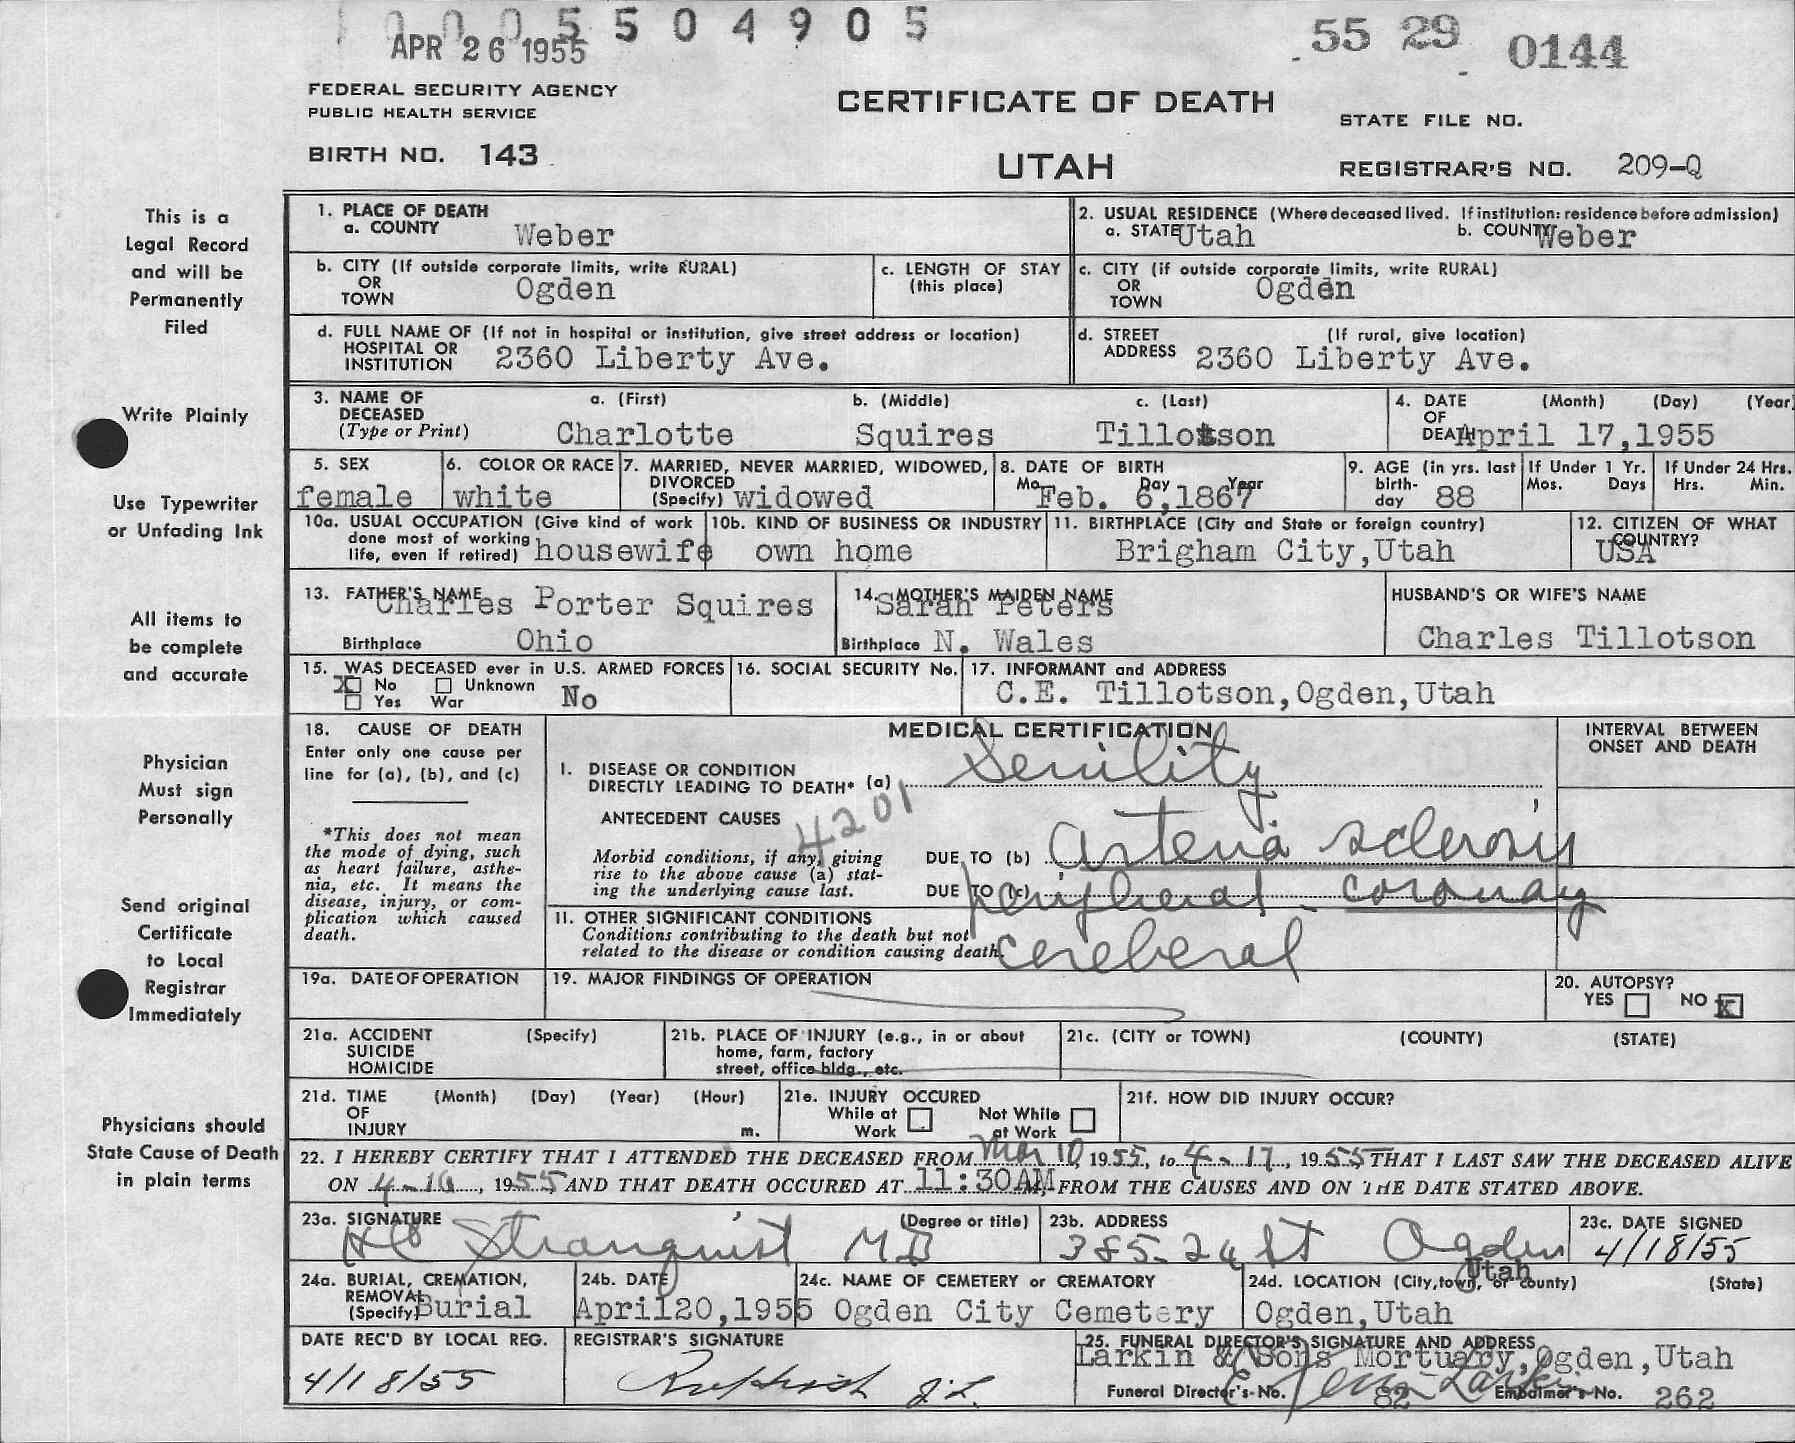 0005504905
APR 26 1955
55 29 0144
FEDERAL SECURITY AGENCY
PUBLIC HEALTH SERVICE
CERTIFICATE OF DEATH
STATE FILE NO.
BIRTH NO. 143
UTAH
REGISTRAR'S NO. 209-Q
This is a
Legal Record
and will be
Permanently
Filed
Write Plainly
Use Typewriter
or Unfading Ink
All items to
be complete
and accurate
Physician
Must sign
Personally
Send original
Certificate
to Local
Registrar
Immediately
Physicians should
State Cause of Death
in plain terms
1. PLACE OF DEATH
a. COUNTY Weber
2. USUAL RESIDENCE (Where deceased lived. If institution: residence before admission)
a. STATE Utah b. COUNTY Weber
b. CITY (If outside corporate limits, write RURAL)
OR
TOWN Ogden
c. LENGTH OF STAY
(this place)
c. CITY (if outside corporate limits, write RURAL)
OR
TOWN Ogden
d. FULL NAME OF (If not in hospital or institution, give street address or location)
HOSPITAL OR
INSTITUTION 2360 Liberty Ave.
d. STREET (If rural, give location)
ADDRESS 2360 Liberty Ave.
3. NAME OF
DECEASED
(Type or Print)
a. (First) b. (Middle) c. (Last)
Charlotte Squires Tillotson
4. DATE (Month) (Day) (Year)
OF
DEATH April 17,1955
5. SEX
female
6. COLOR OR RACE
white
7. MARRIED, NEVER MARRIED, WIDOWED,
DIVORCED
(Specify) widowed
8. DATE OF BIRTH
Mo. Day Year
Feb. 6,1867
9. AGE (in yrs. last
birth-
day 88
If Under 1 Yr.
Mos. Days
If Under 24 Hrs.
Hrs. Min.
10a. USUAL OCCUPATION (Give kind of work
done most of working
life, even if retired) housewife
10b. KIND OF BUSINESS OR INDUSTRY
own home
11. BIRTHPLACE (City and State or foreign country)
Brigham City,Utah
12. CITIZEN OF WHAT
COUNTRY?
USA
13. FATHER'S NAME
Charles Porter Squires
Birthplace Ohio
14. MOTHER'S MAIDEN NAME
Sarah Peters
Birthplace N. Wales
HUSBAND'S OR WIFE'S NAME
Charles Tillotson
15. WAS DECEASED ever in U.S. ARMED FORCES
X No Unknown
Yes War No
16. SOCIAL SECURITY No.
17. INFORMANT and ADDRESS
C.E. Tillotson,Ogden,Utah
18. CAUSE OF DEATH
Enter only one cause per
line for (a), (b), and (c)
*This does not mean
the mode of dying, such
as heart failure, asthe-
nia, etc. It means the
disease, injury, or com-
plication which caused
death.
MEDICAL CERTIFICATION
INTERVAL BETWEEN
ONSET AND DEATH
I. DISEASE OR CONDITION
DIRECTLY LEADING TO DEATH* (a) Senility
4201
ANTECEDENT CAUSES
Morbid conditions, if any, giving
rise to the above cause (a) stat-
ing the underlying cause last.
DUE TO (b) arteria sclerosis
DUE TO (c) peripheral - coronary
cerebral
II. OTHER SIGNIFICANT CONDITIONS
Conditions contributing to the death but not
related to the disease or condition causing death.
19a. DATE OF OPERATION
19. MAJOR FINDINGS OF OPERATION
20. AUTOPSY?
YES NO X
21a. ACCIDENT (Specify)
SUICIDE
HOMICIDE
21b. PLACE OF INJURY (e.g., in or about
home, farm, factory
street, office bldg., etc.
21c. (CITY or TOWN) (COUNTY) (STATE)
21d. TIME (Month) (Day) (Year) (Hour)
OF
INJURY m.
21e. INJURY OCCURED
While at Work Not While at Work
21f. HOW DID INJURY OCCUR?
22. I HEREBY CERTIFY THAT I ATTENDED THE DECEASED FROM Mar 10, 1955, to 4-17, 1955 THAT I LAST SAW THE DECEASED ALIVE
ON 4-16, 1955 AND THAT DEATH OCCURED AT 11:30AM, FROM THE CAUSES AND ON THE DATE STATED ABOVE.
23a. SIGNATURE (Degree or title)
Stranquist MD
23b. ADDRESS
385-24 St Ogden
Utah
23c. DATE SIGNED
4/18/55
24a. BURIAL, CREMATION,
REMOVAL
(Specify) Burial
24b. DATE
April20,1955
24c. NAME OF CEMETERY or CREMATORY
Ogden City Cemetery
24d. LOCATION (City, town, or county) (State)
Ogden,Utah
DATE REC'D BY LOCAL REG.
4/18/55
REGISTRAR'S SIGNATURE
25. FUNERAL DIRECTOR'S SIGNATURE AND ADDRESS
Larkin & Sons Mortuary,Ogden,Utah
Larkin
Funeral Director's-No. 82 Embalmer's-No. 262